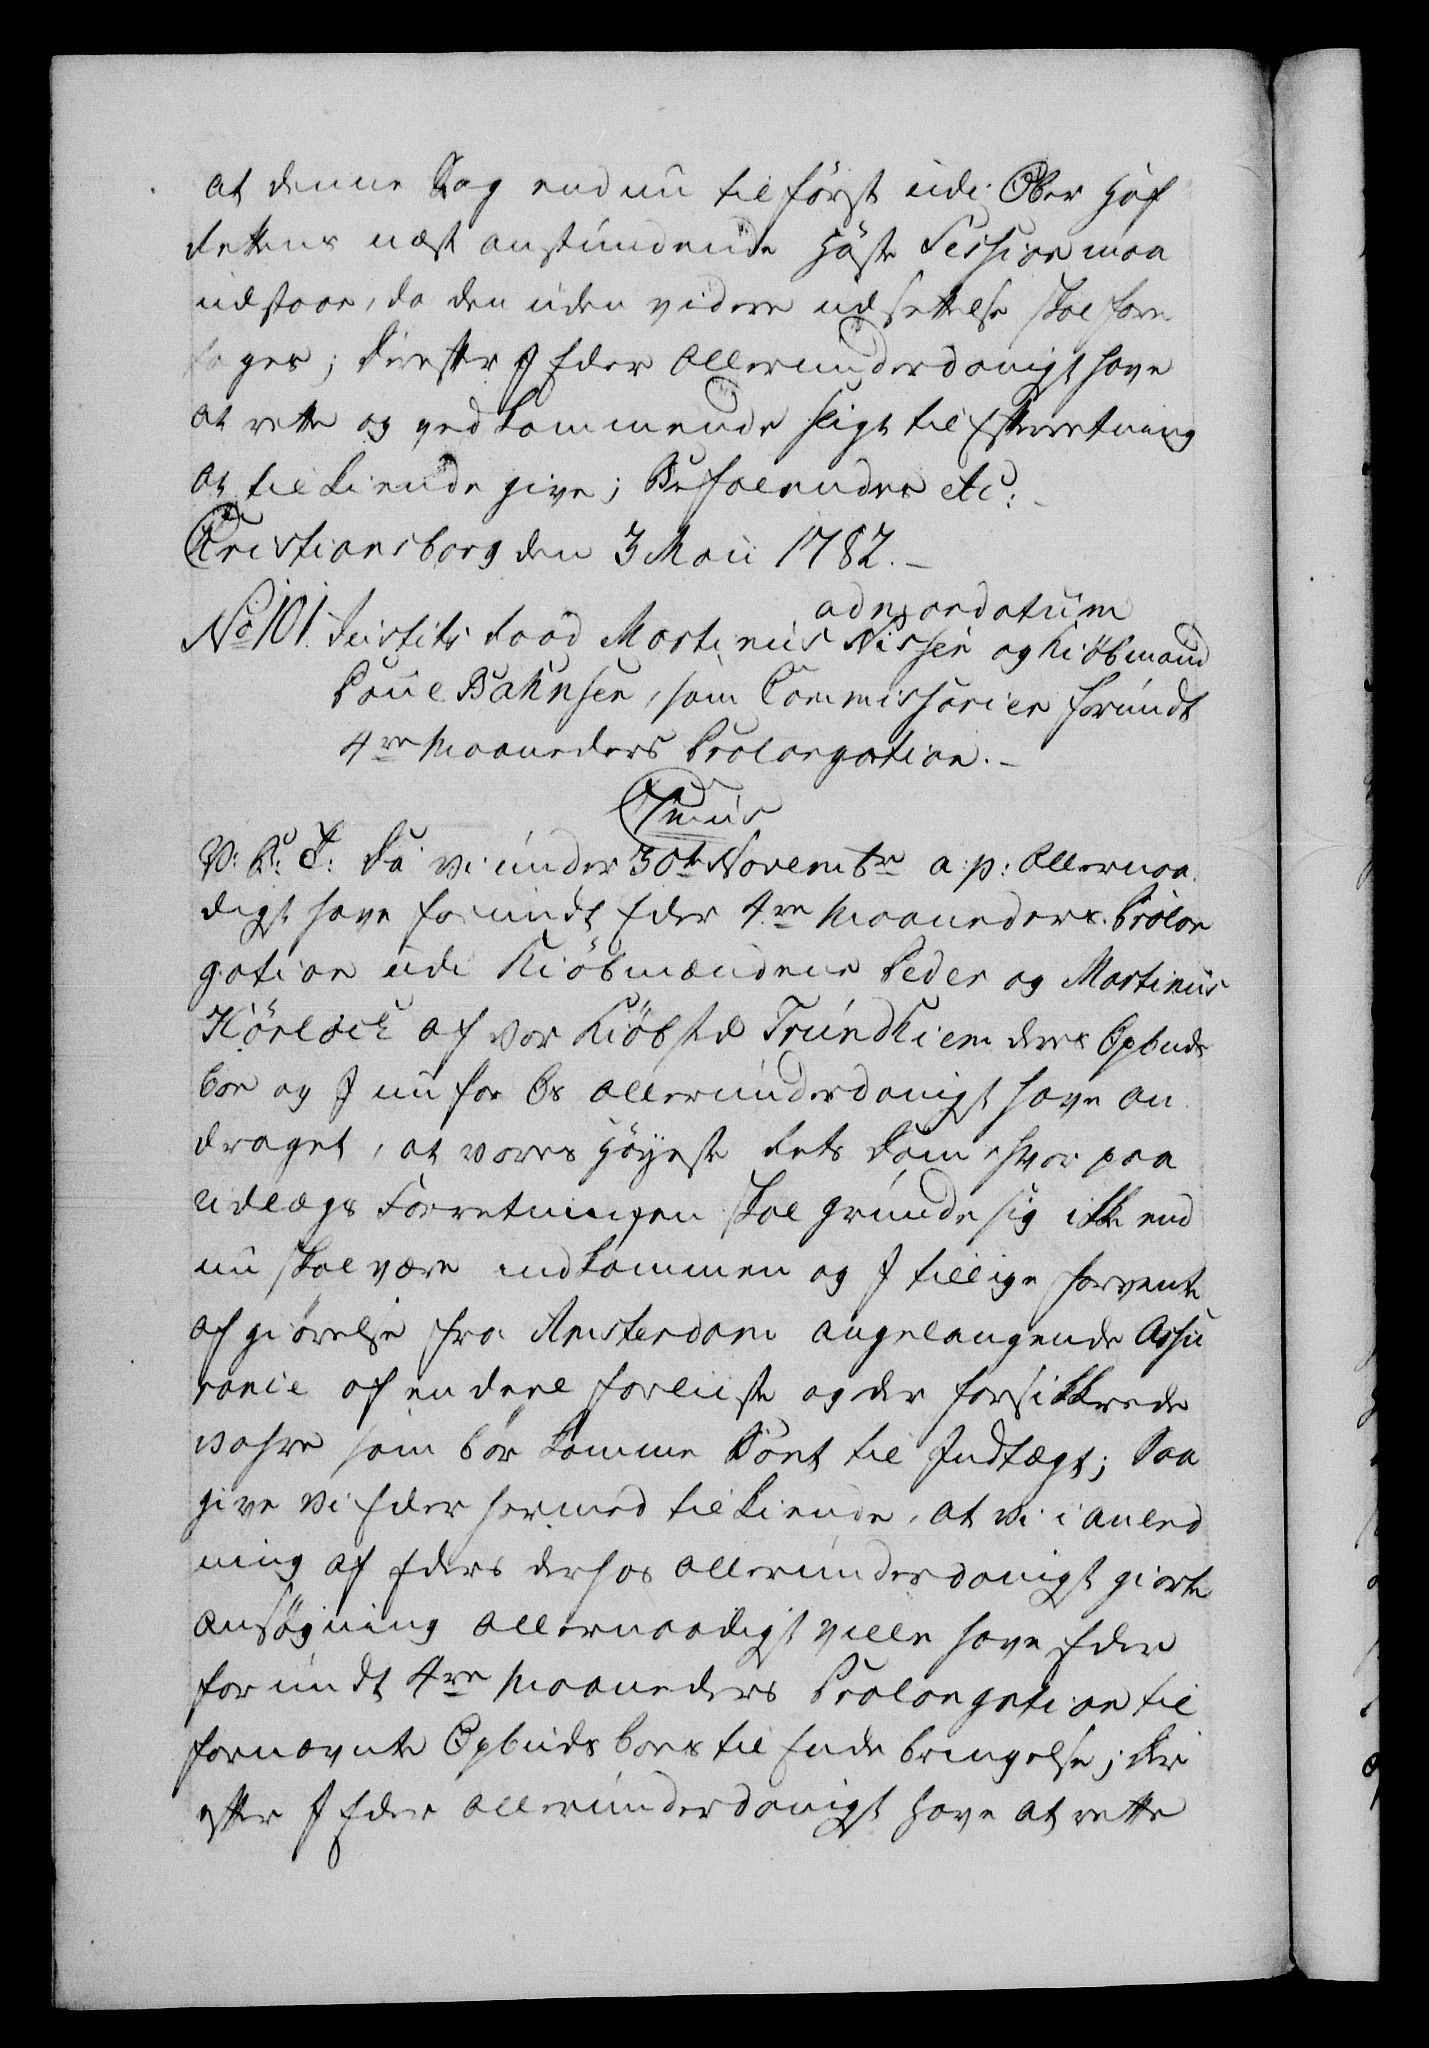 at denne Sag endnu til först udi Ober Hof
Rettens næst anstundende Höste Session maa
udstaae, da den uden videre udsettelse skal fore
tages; Derefter I Eder allerunderdanigst have
at rette og vedkommende sligt til Efterretning
at tilkiende give; Befalendes etc:
Christiansborg den 3 Maii 1782.
adnxordatum
No 101. Justits Raad Martinus Nissen og Kiöbmand
Poul Bahnsen, som Commissarier forundt
4re Maaneders Prolongation.
Tenuis
V: G: T: Da vi under 30te Novembr a: p: allernaa
digst have forundt Eder 4re Maaneders Prolon
gation udi Kiöbmændene Peder og Martinus
Hörlöck af vor Kiöbsted Trundhiem deres Opbuds
boe og I nu for Os allerunderdanigst have an
draget, at vores Höyeste Rets Dom hvor paa
udlægs Forretningen skal grunde sig ikke end
nu skal være indkommen og I tillige forvente
afgiörelse fra Amsterdam angelangende Assu
rance af en deel forliiste og der forsikkrede
vahre som bör komme Boet til Indtægt; Saa
give vi Eder hermed tilkiende, at vi i anled
ning af Eders derhos allerunderdanigst giorte
ansögning allernaadigst ville have Eder
forundt 4re Maaneders Prolongation til
fornævnte Opbuds Boes til Ende bringelse; der
efter I Eder allerunderdanigst have at rette